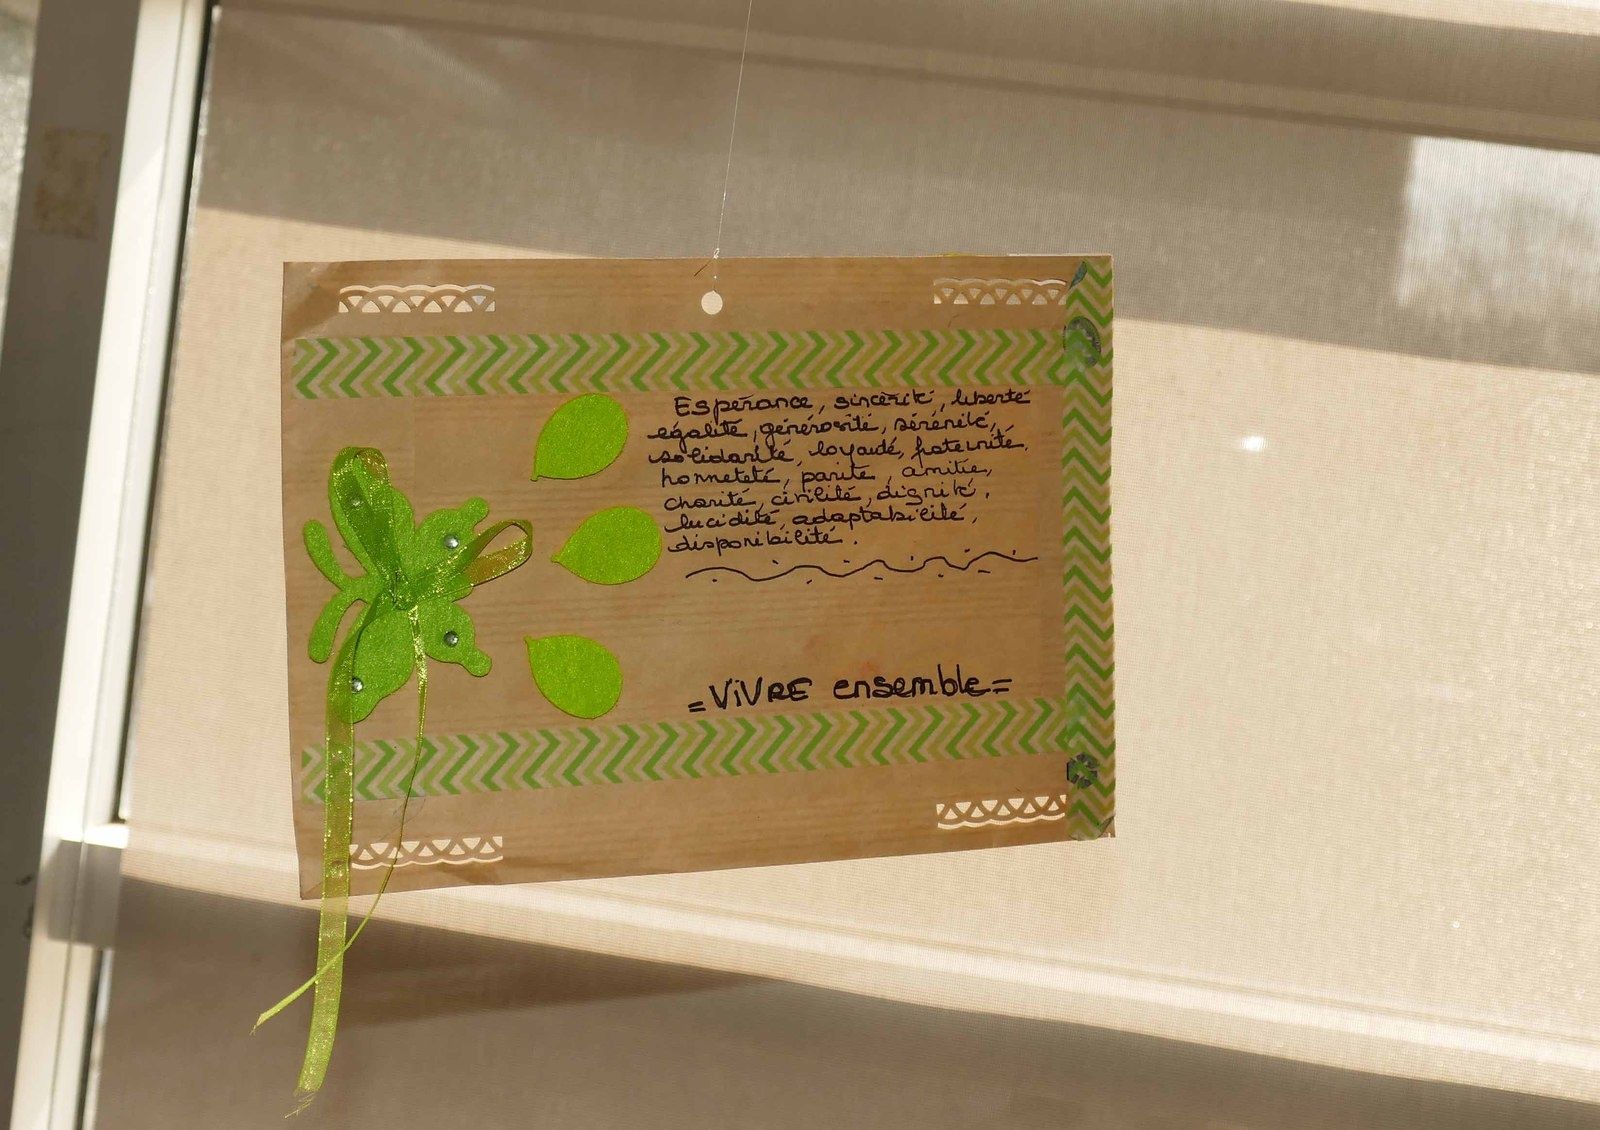 Espérance, sincérité, liberté
égalité, générosité, sérénité,
solidarité, loyauté, fraternité,
honneteté, parité, amitié,
charité, civilité, dignité,
lucidité, adaptabilité,
disponibilité.
=ViVRE ensemble=